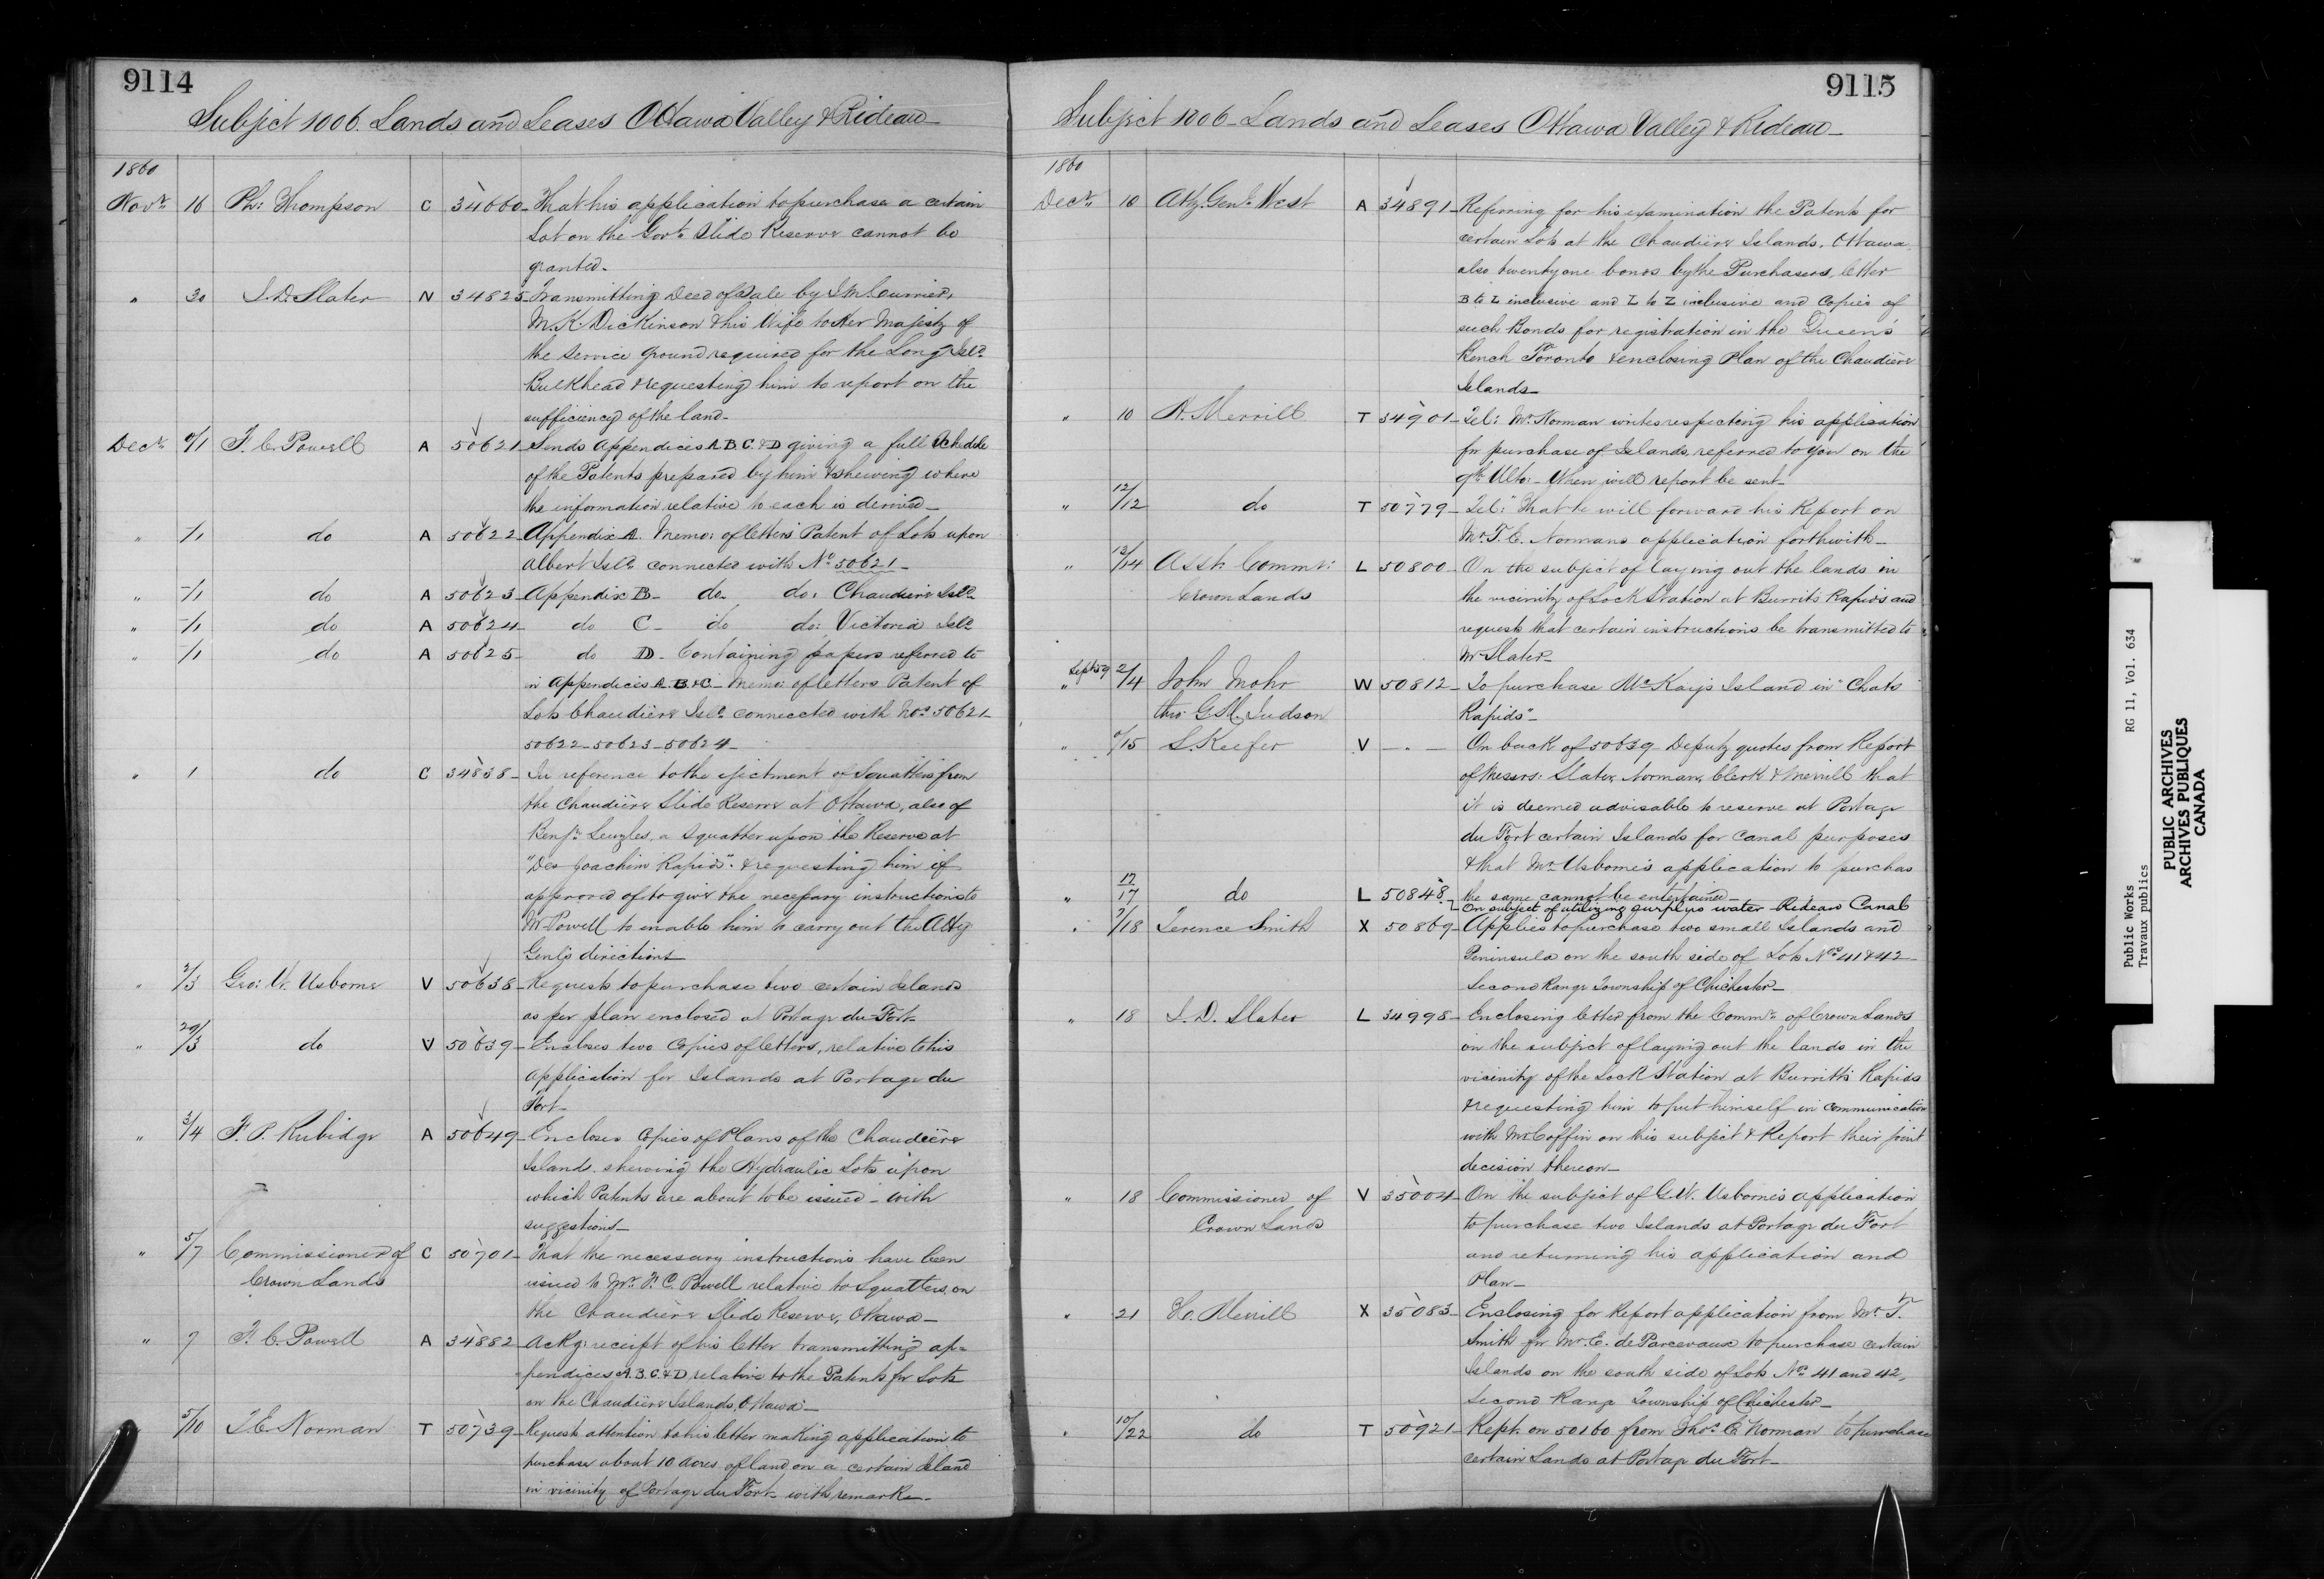 9114
Subject 1006. Lands and Leases Ottawa Valley & Rideau
1860
Novr. 16 Ph: Thompson C 34660 - That his application to purchase a certain
Lot on the Govt. Slide Reserve cannot be
granted.
" 30 J. D. Slater N 34825 - Transmitting Deed of Sale by J M Currier,
M. K. Dickinson & his Wife to Her Majesty of
the Service ground required for the Long Isld.
Bulkhead & requesting him to report on the
sufficiency of the land -
Decr. 0/1 F. C. Powell A 50621 - Sends Appendices A. B. C. & D giving a full Schedule
of the Patents prepared by him & shewing where
the information relative to each is derived -
" -/1 do A 50622 - Appendix A. Memo: of letters Patent of Lots upon
Albert Isld. connected with No. 50621 -
" -/1 do A 50623 - Appendix B - do - do: Chaudiere Isld.
" -/1 do A 50624 - do C - do do: Victoria Isld.
" -/1 do A 50625 - do D - Containing papers referred to
in Appendices A. B. & C. - Memo: of letters Patent of
Lots Chaudière Isld. connected with Nos. 50621 -
50622 - 50623 - 50624 -
" 1 do C 34838 - In reference to the ejectment of Squatters from
the Chaudière Slide Reserve at Ottawa, also of
Benjn. a Squatter upon the Reserve at
"Des Joachim Rapid" & requesting him if
approved of to give the necessary instructions to
Mr Powell to enable him to carry out the Atty
Genl's directions
" 2/3 Geo: W. Usborne V 50638 - Requests to purchase two certain Islands
as per plan enclosed at Portage du Fort -
" 29/3 do V 50639 - Encloses two Copies of letters, relative to his
application for Islands at Portage du
Fort -
" 3/4 F. P. Rubidge A 50649 - Encloses Copies of Plans of the Chaudière
Islands shewing the Hydraulic Lots upon
which Patents are about to be issued - with
suggestions -
" 5/7 Commissioner of C 50701 - That the necessary instructions have been
Crown Lands issued to Mr. F. C. Powell relative to Squatters on
the Chaudière Slide Reserve, Ottawa -
" 7 F. C. Powell A 34882 - Ackg: receipt of his letter transmitting ap=
pendices A. B. C. & D relative to the Patents for Lots
on the Chaudière Islands, Ottawa -
5/10 T E. Norman T 50739 - Requests attention to his letter making application to
purchase about 10 Acres of land on a certain Island
in vicinity of Portage du Fort - with remarks -
9115
Subject 1006 - Lands and Leases Ottawa Valley & Rideau -
1860
Decr. 10 Atty. Genl. West A 34891 - Referring for his examination the Patents for
certain Lots at the Chaudière Islands, Ottawa
also twenty one bonds by the Purchasers, letter
B to L inclusive and L to Z inclusive and Copies of
such Bonds for registration in the Queen's
Bench Toronto & enclosing Plan of the Chaudière
Islands -
" 10 H. Merrill T 34901 - Tel: Mr. Norman writes respecting his application
for purchase of Islands, referred to you on the
9th Ulto: - When will report be sent -
" 12/12 do T 50779 - Tel: "That he will forward his Report on
Mr. T. E. Normans application forthwith -
" 13/14 Asst. Commr: L 50800 - On the subject of laying out the lands in
Crown Lands the vicinity of Lock Station at Burrit's Rapids and
requests that certain instructions be transmitted to
Mr Slater -
" Sept 59 2/4 John Mohr W 50812 - To purchase McKay's Island in "Chats
thro: G. M. Judson Rapids" -
" 0/15 S. Keefer V - " - On back of 50639 - Deputy quotes from Report
of Messrs: Slater, Norman, Clerk & Merrill that
it is deemed advisable to reserve at Portage
du Fort certain Islands for Canal purposes
& that Mr. Usborne's application to purchas
the same cannot be entertained -
" 17/17 do L 50848 - On subject of utilizing surplus water Rideau Canal
" 7/18 Terence Smith X 50869 - Applies to purchase two small Islands and
Peninsula on the south side of Lots Nos. 41 & 42 -
Second Range Township of Chichester -
" 18 J. D. Slater L 34998 - Enclosing letter from the Commr. of Crown Lands
on the subject of laying out the lands in the
vicinity of the Lock Station at Burritt's Rapids
& requesting him to put himself in communication
with Mr Coffin on this subject & Report their joint
decision thereon -
" 18 Commissioner of V 35004 - On the subject of G. W. Usborne's application
Crown Lands to purchase two Islands at Portage du Fort
and returning his application and
Plan -
" 21 H. Merrill X 35083 - Enclosing for Report application from Mr. T.
Smith for Mr. E. de Parcevaux to purchase certain
Islands on the south side of Lots Nos. 41 and 42,
Second Range Township of Chichester -
" 10/22 do T 50921 - Rept. on 50160 from Thos. E Norman to purchase
certain Lands at Portage du Fort -
Public Works RG 11, Vol. 634
Travaux publics
PUBLIC ARCHIVES
ARCHIVES PUBLIQUES
CANADA